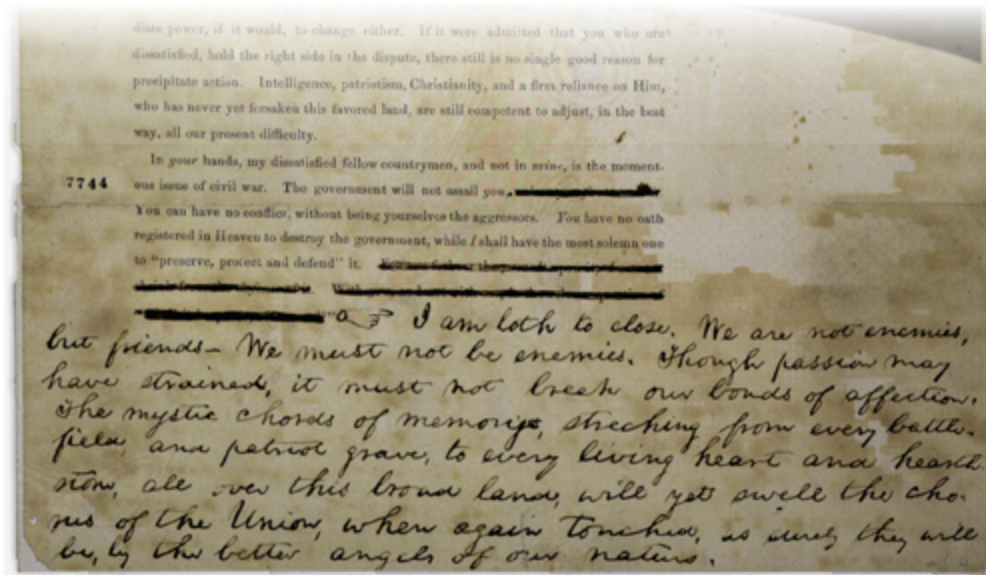 diate power, if it would, to change either. If it were admitted that you who are
dissatisfied, hold the right side in the dispute, there still is no single good reason for
precipitate action. Intelligence, patriotism, Christianity, and a firm reliance on Him,
who has never yet forsaken this favored land, are still competent to adjust, in the best
way, all our present difficulty.
In your hands, my dissatisfied fellow countrymen, and not in mine, is the moment-
7744 ous issue of civil war. The government will not assail you.
You can have no conflict, without being yourselves the aggressors. You have no oath
registered in Heaven to destroy the government, while I shall have the most solemn one
to "preserve, protect and defend" it.
I am loth to close. We are not enemies,
but friends— We must not be enemies. Though passion may
have strained, it must not break our bonds of affection.
The mystic chords of memory, streching from every battle-
field, and patriot grave, to every living heart and hearth
stone, all over this broad land, will yet swell the cho-
rus of the Union, when again touched, as surely they will
be, by the better angels of our nature.